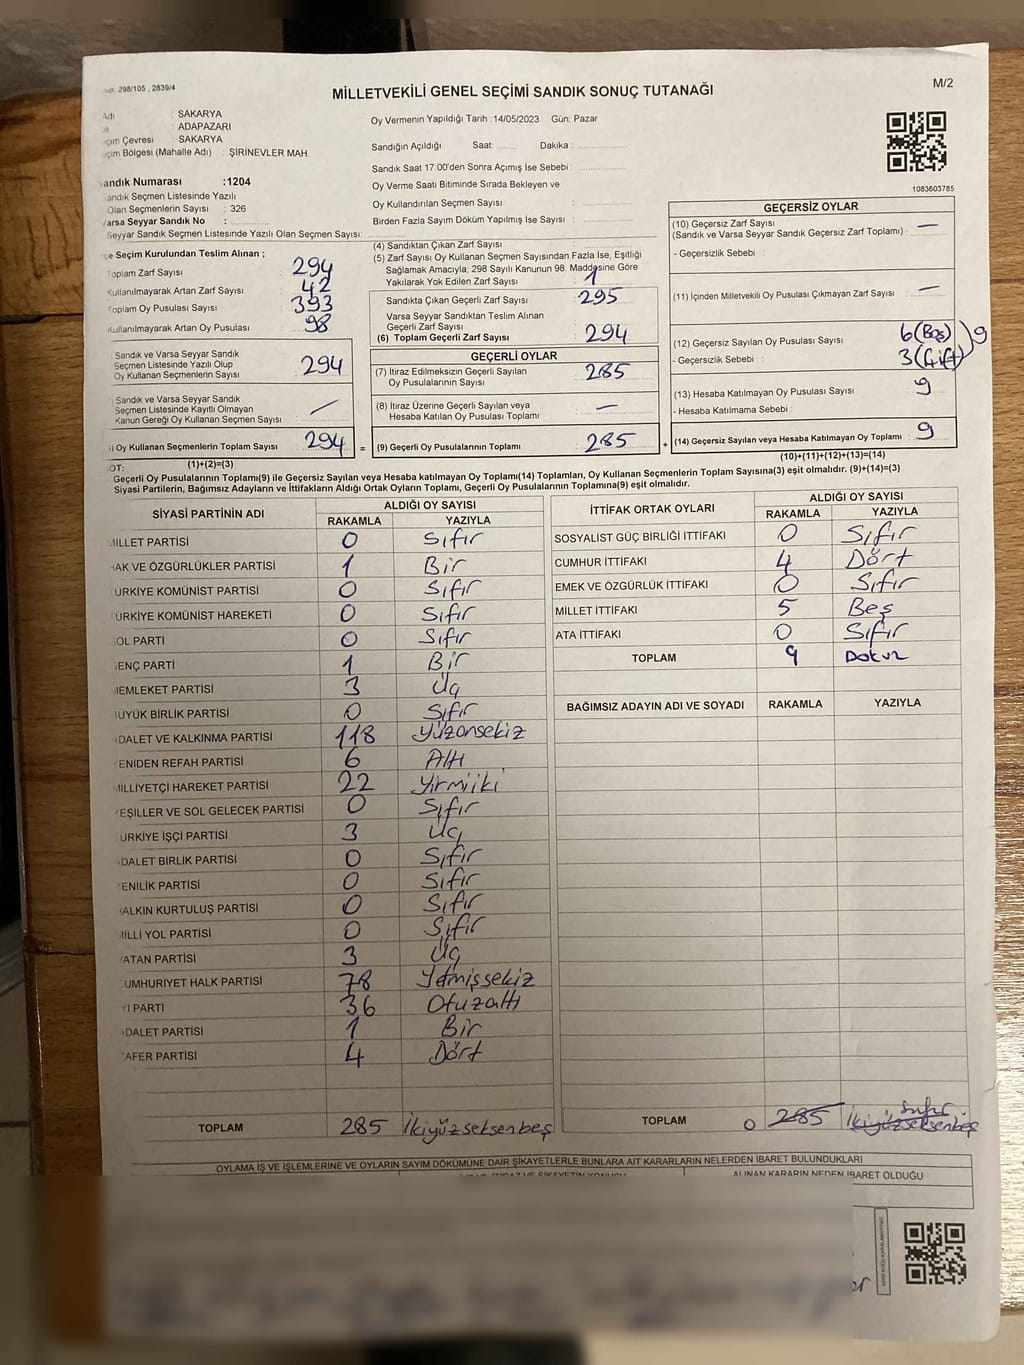 298/105 , 2839/4
MİLLETVEKİLİ GENEL SEÇİMİ SANDIK SONUÇ TUTANAĞI
M/2
Adı : SAKARYA
: ADAPAZARI
Çevresi : SAKARYA
Bölgesi (Mahalle Adı) : ŞİRİNEVLER MAH.
Oy Vermenin Yapıldığı Tarih :14/05/2023 Gün: Pazar
Sandığın Açıldığı Saat: Dakika :
Sandık Saat 17:00'den Sonra Açımış İse Sebebi :
Oy Verme Saati Bitiminde Sırada Bekleyen ve
Oy Kullandırılan Seçmen Sayısı :
Birden Fazla Sayım Döküm Yapılmış İse Sayısı :
1083603785
andık Numarası :1204
andık Seçmen Listesinde Yazılı
Olan Seçmenlerin Sayısı : 326
Varsa Seyyar Sandık No :
Seyyar Sandık Seçmen Listesinde Yazılı Olan Seçmen Sayısı:
çe Seçim Kurulundan Teslim Alınan ;
Toplam Zarf Sayısı 294
Kullanılmayarak Artan Zarf Sayısı 42
Toplam Oy Pusulası Sayısı 393
Kullanılmayarak Artan Oy Pusulası 98
Sandık ve Varsa Seyyar Sandık
Seçmen Listesinde Yazılı Olup
Oy Kullanan Seçmenlerin Sayısı 294
Sandık ve Varsa Seyyar Sandık
Seçmen Listesinde Kayıtlı Olmayan
Kanun Gereği Oy Kullanan Seçmen Sayısı : —
) Oy Kullanan Seçmenlerin Toplam Sayısı 294 =
(1)+(2)=(3)
(4) Sandıktan Çıkan Zarf Sayısı :
(5) Zarf Sayısı Oy Kullanan Seçmen Sayısından Fazla İse, Eşitliği
Sağlamak Amacıyla; 298 Sayılı Kanunun 98. Maddesine Göre
Yakılarak Yok Edilen Zarf Sayısı : 1
Sandıkta Çıkan Geçerli Zarf Sayısı : 295
Varsa Seyyar Sandıktan Teslim Alınan
Geçerli Zarf Sayısı :
(6) Toplam Geçerli Zarf Sayısı : 294
GEÇERLİ OYLAR
(7) İtiraz Edilmeksizin Geçerli Sayılan
Oy Pusulalarının Sayısı : 285
(8) İtiraz Üzerine Geçerli Sayılan veya
Hesaba Katılan Oy Pusulası Toplamı : —
(9) Geçerli Oy Pusulalarının Toplamı 285 +
GEÇERSİZ OYLAR
(10) Geçersiz Zarf Sayısı
(Sandık ve Varsa Seyyar Sandık Geçersiz Zarf Toplamı) : —
- Geçersizlik Sebebi :
(11) İçinden Milletvekili Oy Pusulası Çıkmayan Zarf Sayısı : —
(12) Geçersiz Sayılan Oy Pusulası Sayısı : 6 (Boş)
- Geçersizlik Sebebi : 3 (Çift) ) 9
(13) Hesaba Katılmayan Oy Pusulası Sayısı : 9
- Hesaba Katılmama Sebebi :
(14) Geçersiz Sayılan veya Hesaba Katılmayan Oy Toplamı : 9
(10)+(11)+(12)+(13)=(14)
OT:
Geçerli Oy Pusulalarının Toplamı(9) ile Geçersiz Sayılan veya Hesaba katılmayan Oy Toplamı(14) Toplamları, Oy Kullanan Seçmenlerin Toplam Sayısına(3) eşit olmalıdır. (9)+(14)=(3)
Siyasi Partilerin, Bağımsız Adayların ve İttifakların Aldığı Ortak Oyların Toplamı, Geçerli Oy Pusulalarının Toplamına(9) eşit olmalıdır.
SİYASİ PARTİNİN ADI ALDIĞI OY SAYISI
RAKAMLA YAZIYLA
MİLLET PARTİSİ 0 Sıfır
HAK VE ÖZGÜRLÜKLER PARTİSİ 1 Bir
TÜRKİYE KOMÜNİST PARTİSİ 0 Sıfır
TÜRKİYE KOMÜNİST HAREKETİ 0 Sıfır
SOL PARTİ 0 Sıfır
GENÇ PARTİ 1 Bir
MEMLEKET PARTİSİ 3 Üç
BÜYÜK BİRLİK PARTİSİ 0 Sıfır
ADALET VE KALKINMA PARTİSİ 118 Yüzonsekiz
YENİDEN REFAH PARTİSİ 6 Altı
MİLLİYETÇİ HAREKET PARTİSİ 22 Yirmiiki
YEŞİLLER VE SOL GELECEK PARTİSİ 0 Sıfır
TÜRKİYE İŞÇİ PARTİSİ 3 Üç
ADALET BİRLİK PARTİSİ 0 Sıfır
YENİLİK PARTİSİ 0 Sıfır
HALKIN KURTULUŞ PARTİSİ 0 Sıfır
MİLLİ YOL PARTİSİ 0 Sıfır
VATAN PARTİSİ 3 Üç
CUMHURİYET HALK PARTİSİ 78 Yetmişsekiz
İYİ PARTİ 36 Otuzaltı
ADALET PARTİSİ 1 Bir
ZAFER PARTİSİ 4 Dört
TOPLAM 285 İkiyüzseksenbeş
İTTİFAK ORTAK OYLARI ALDIĞI OY SAYISI
RAKAMLA YAZIYLA
SOSYALİST GÜÇ BİRLİĞİ İTTİFAKI 0 Sıfır
CUMHUR İTTİFAKI 4 Dört
EMEK VE ÖZGÜRLÜK İTTİFAKI 0 Sıfır
MİLLET İTTİFAKI 5 Beş
ATA İTTİFAKI 0 Sıfır
TOPLAM 9 Dokuz
BAĞIMSIZ ADAYIN ADI VE SOYADI RAKAMLA YAZIYLA
Sıfır
TOPLAM 0 285 İkiyüzseksenbeş
OYLAMA İŞ VE İŞLEMLERİNE VE OYLARIN SAYIM DÖKÜMÜNE DAİR ŞİKAYETLERLE BUNLARA AİT KARARLARIN NELERDEN İBARET BULUNDUKLARI
ALINAN KARARIN NEDEN İBARET OLDUĞU